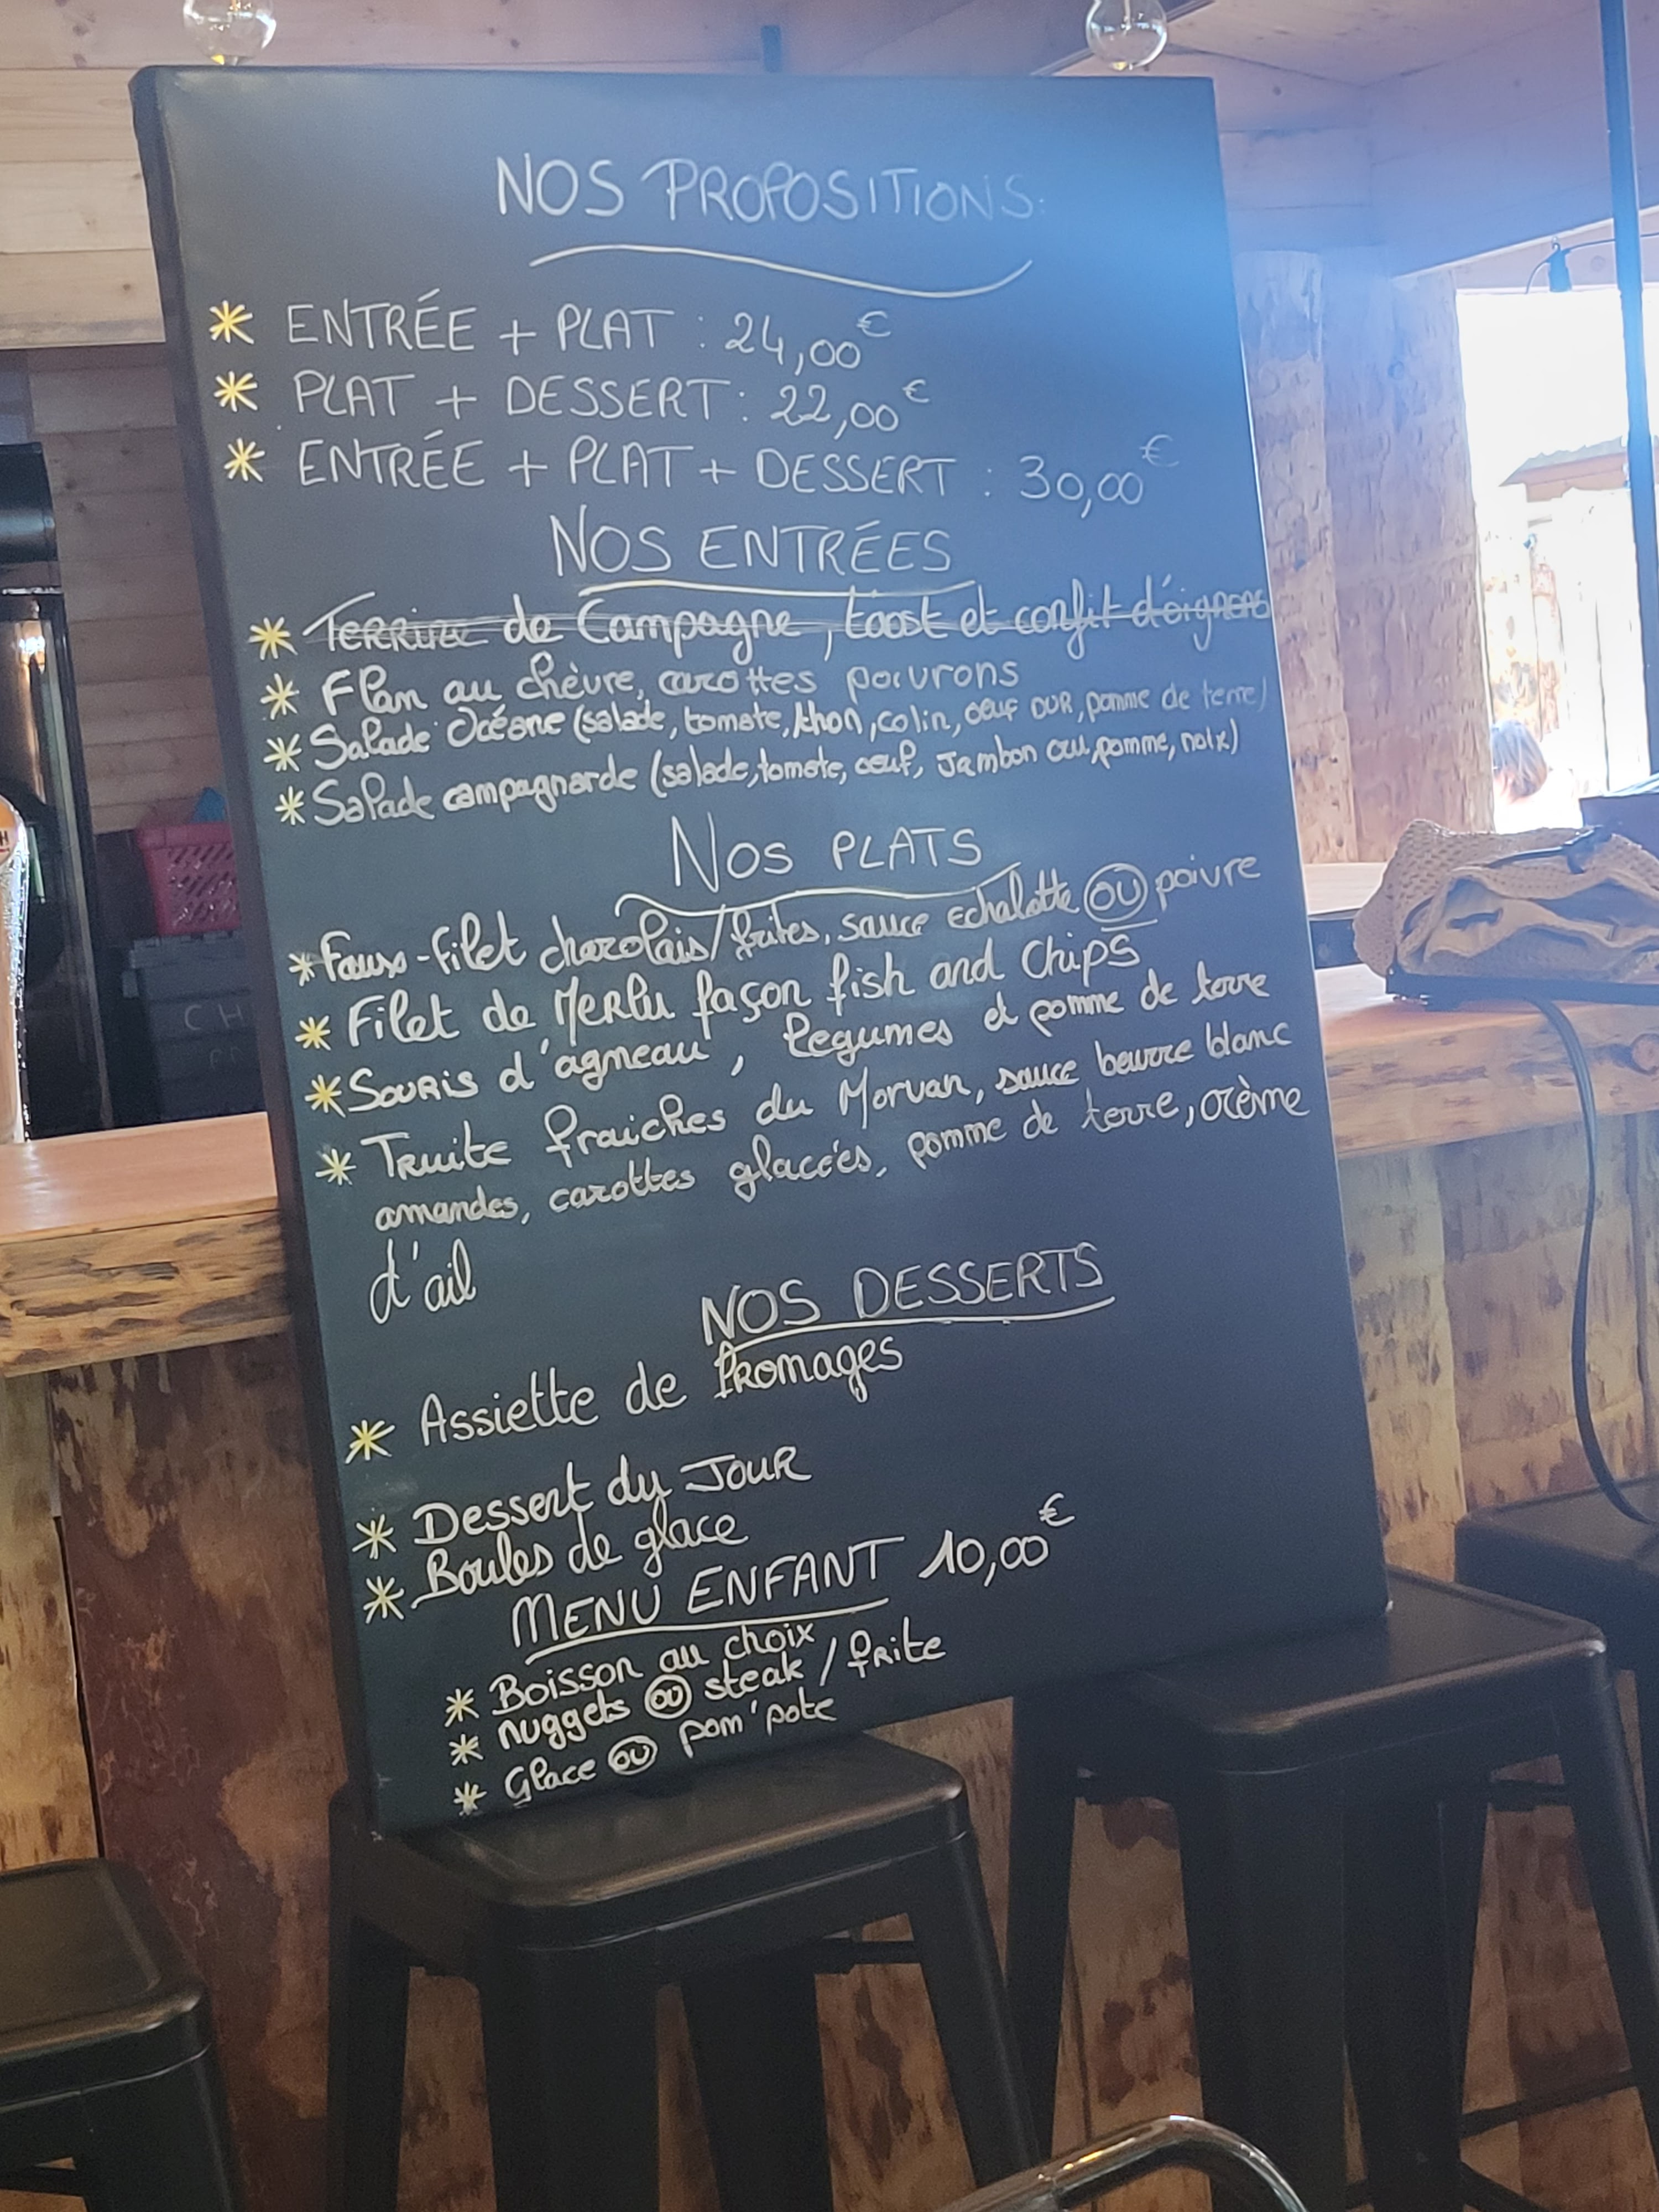 NOS PROPOSITIONS:
* ENTRÉE + PLAT : 24,00€
* PLAT + DESSERT : 22,00€
* ENTRÉE + PLAT + DESSERT : 30,00€
NOS ENTRÉES
* Terrine de Campagne, toast et confit d'oignons
* Flan au chèvre, carottes poivrons
* Salade Océane (salade, tomate, thon, colin, oeuf DUR, pomme de terre)
* Salade campagnarde (salade, tomate, oeuf, Jambon cru, pomme, noix)
NOS PLATS
* Faux-filet charolais/frites, sauce echalotte OU poivre
* Filet de Merlu façon fish and Chips
* Souris d'agneau, legumes et pomme de terre
* Truite fraiches du Morvan, sauce beurre blanc
amandes, carottes glacées, pomme de terre, crème
d'ail
NOS DESSERTS
* Assiette de fromages
* Dessert du JOUR
* Boules de glace
MENU ENFANT 10,00€
* Boisson au choix
* nuggets OU steak / frite
* Glace OU pom'pote
CH